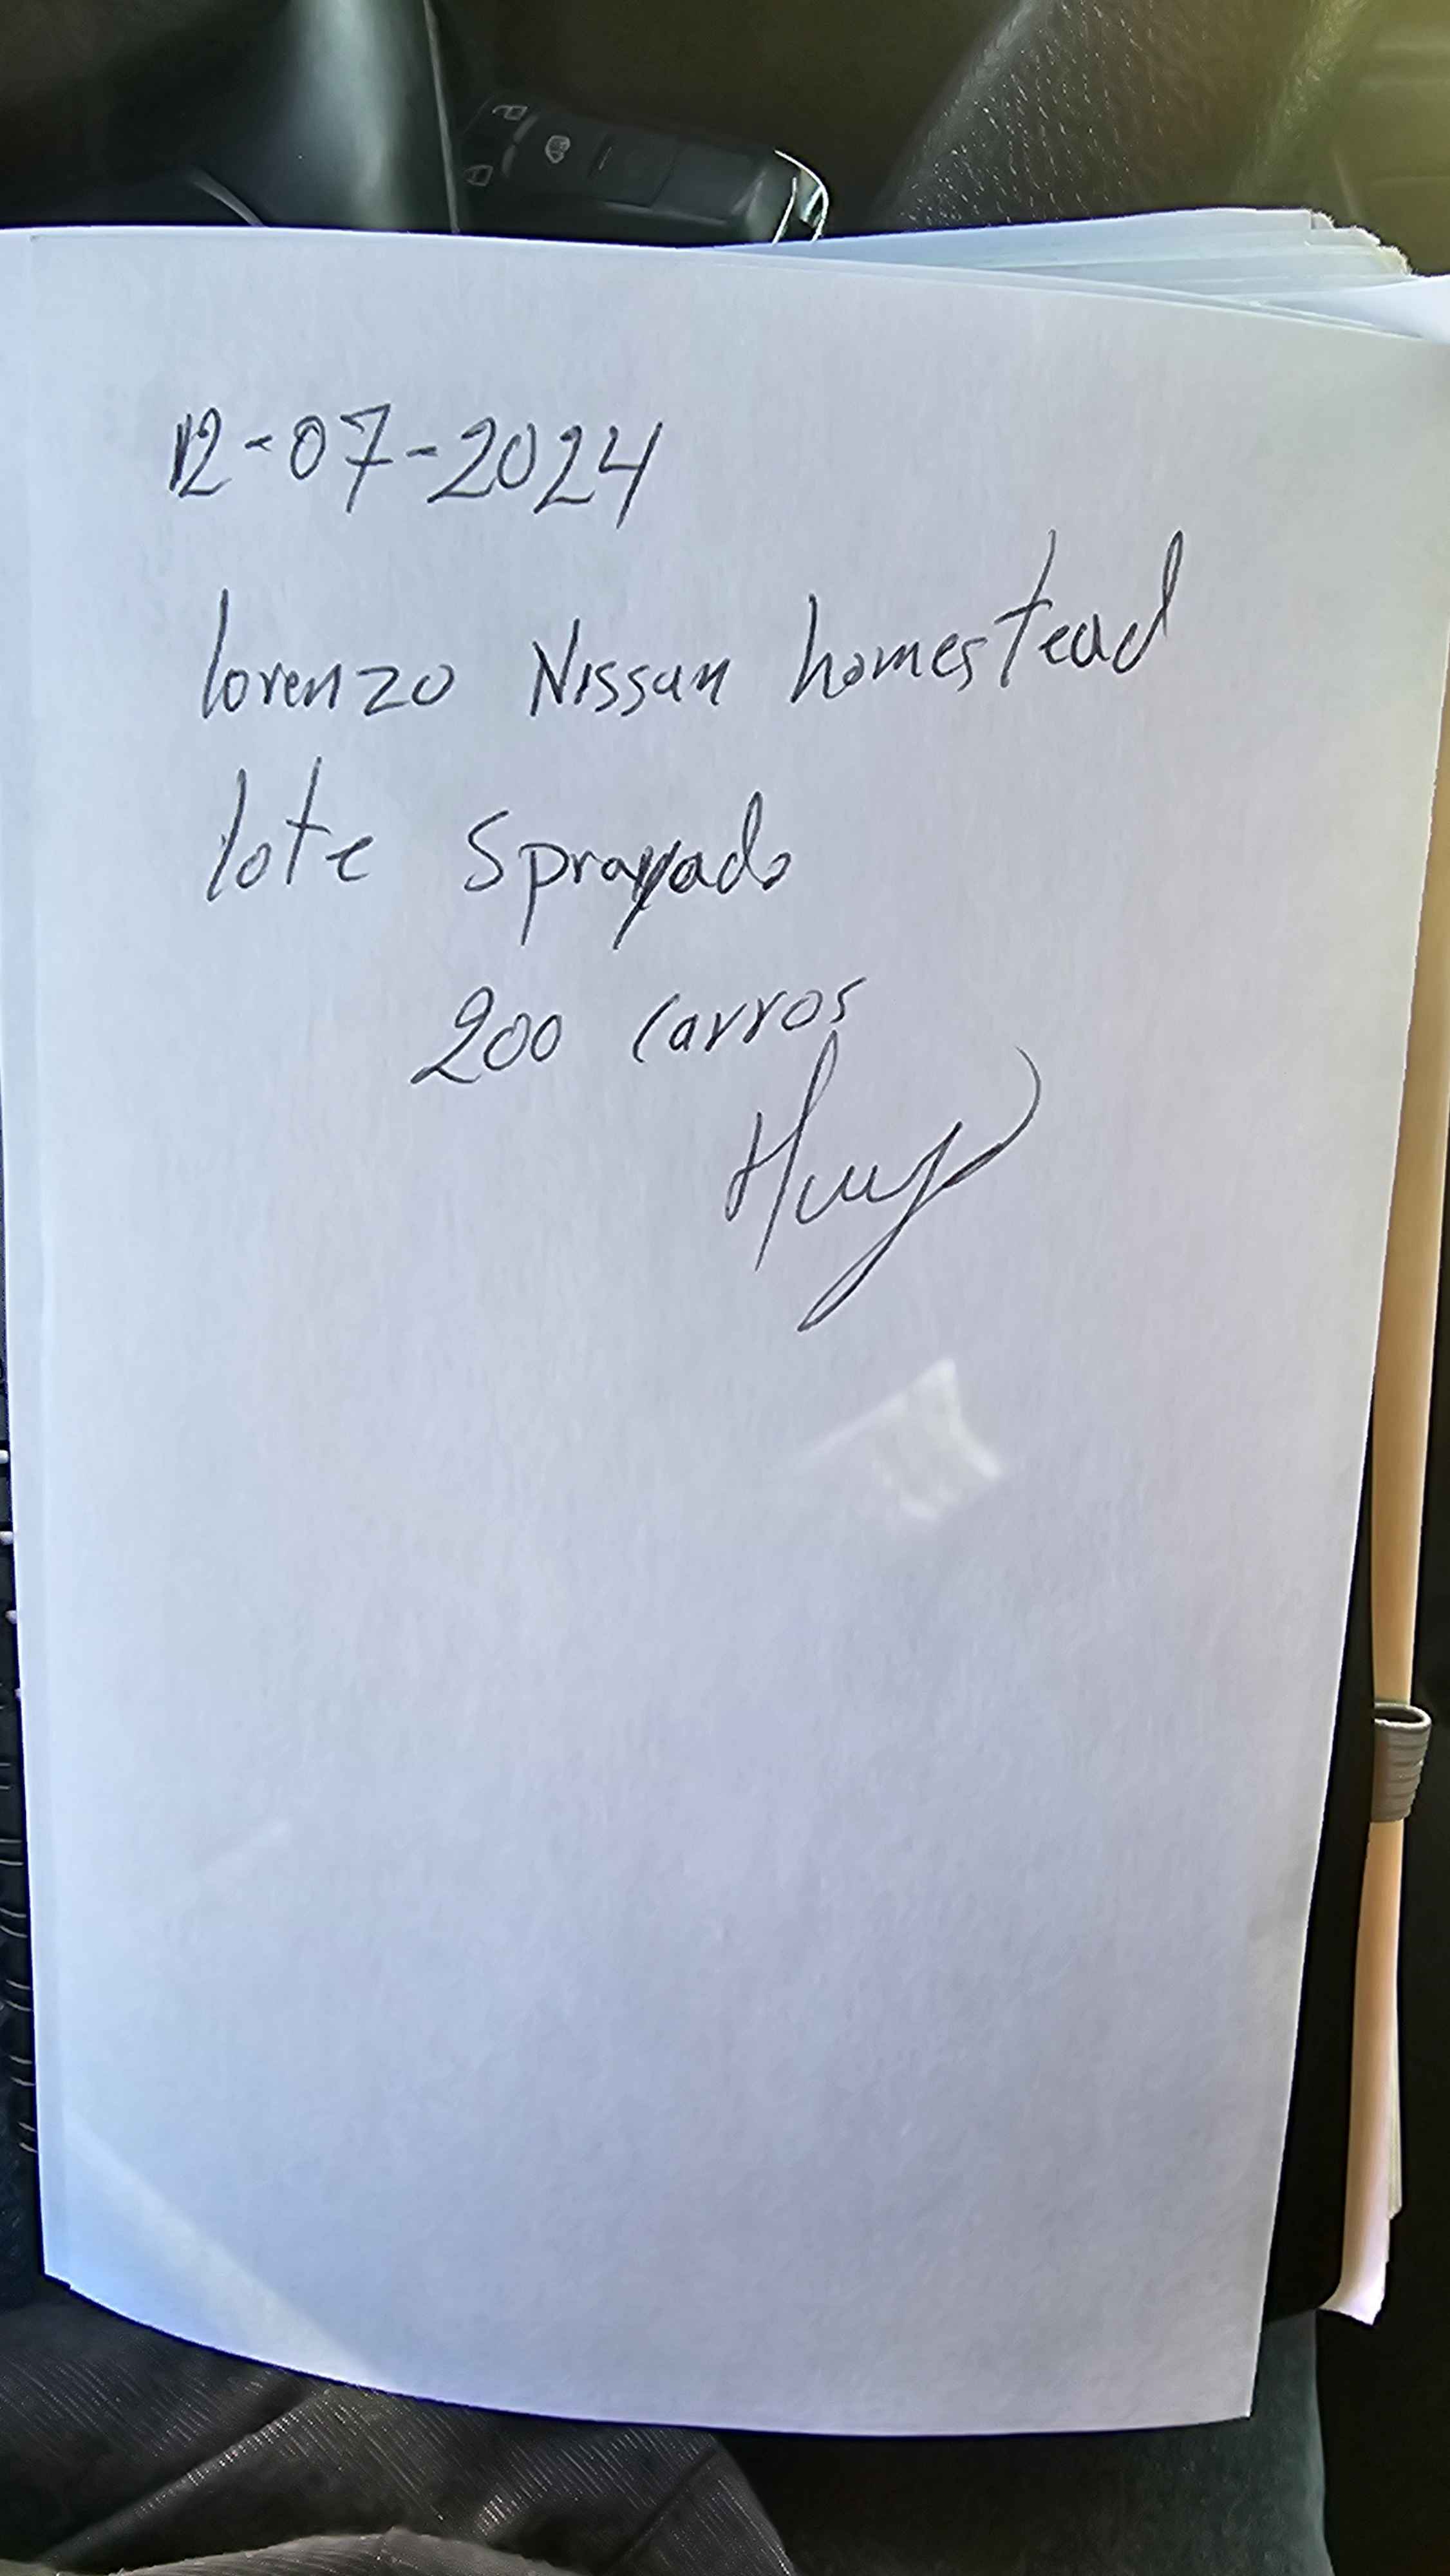 12-07-2024
lorenzo Nissan homestead
lote sprayado
200 carros